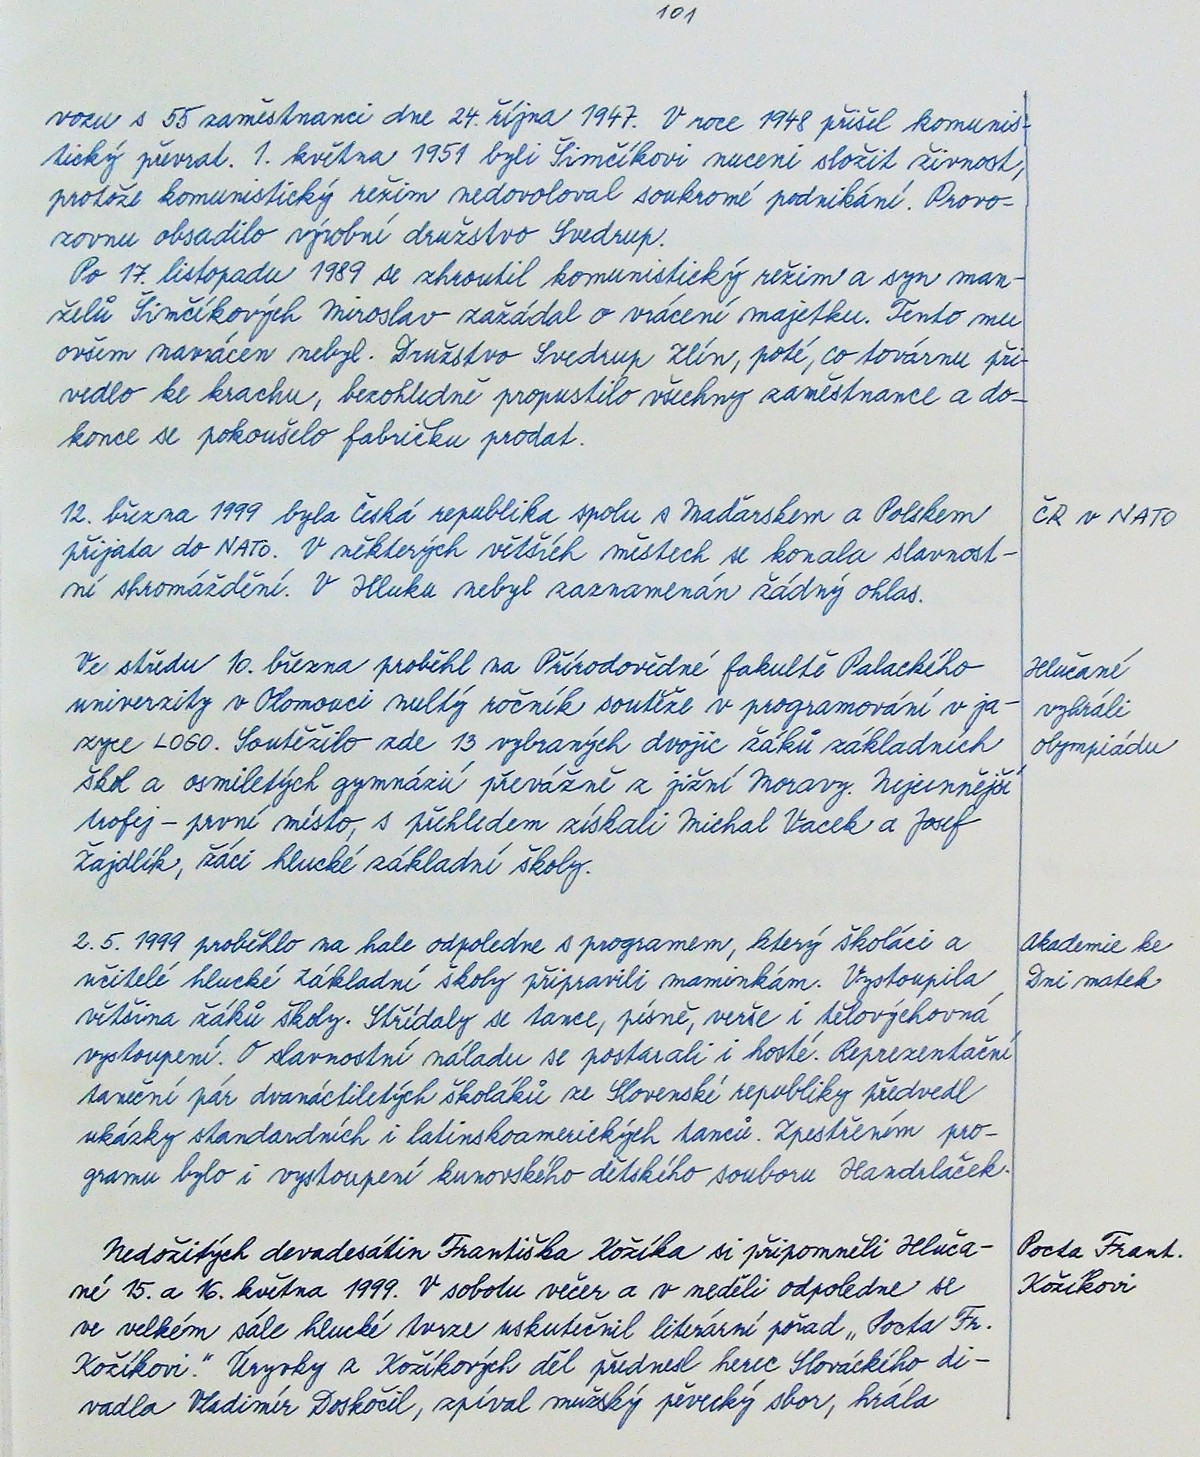 101
vozu s 55 zaměstnanci dne 24. října 1947. V roce 1948 přišel komunis-
tický převrat. 1. května 1951 byli Šimčíkovi nuceni složit živnost,
protože komunistický režim nedovoloval soukromé podnikání. Provo-
zovnu obsadilo výrobní družstvo Svedrup.
Po 17. listopadu 1989 se zhroutil komunistický režim a syn man-
želů Šimčíkových Miroslav zažádal o vrácení majetku. Tento mu
ovšem navrácen nebyl. Družstvo Svedrup Zlín, poté, co továrnu při-
vedlo ke krachu, bezohledně propustilo všechny zaměstnance a do-
konce se pokoušelo fabričku prodat.
12. března 1999 byla Česká republika spolu s Maďarskem a Polskem
přijata do NATO. V některých větších městech se konala slavnost-
ní shromáždění. V Hluku nebyl zaznamenán žádný ohlas.
ČR v NATO
Ve středu 10. března proběhl na Přírodovědné fakultě Palackého
univerzity v Olomouci nultý ročník soutěže v programování v ja-
zyce LOGO. Soutěžilo zde 13 vybraných dvojic žáků základních
škol a osmiletých gymnázií převážně z jižní Moravy. Nejcennější
trofej – první místo, s přehledem získali Michal Vacek a Josef
Žajdlík, žáci hlucké základní školy.
Hlučané
vyhráli
olympiádu
2. 5. 1999 proběhlo na hale odpoledne s programem, který školáci a
učitelé hlucké Základní školy připravili maminkám. Vystoupila
většina žáků školy. Střídaly se tance, písně, verše i tělovýchovná
vystoupení. O slavnostní náladu se postarali i hosté. Reprezentační
taneční pár dvanáctiletých školáků ze Slovenské republiky předvedl
ukázky standardních i latinskoamerických tanců. Zpestřením pro-
gramu bylo i vystoupení kunovského dětského souboru Handrláček.
Akademie ke
Dni matek
Nedožitých devadesátin Františka Kožíka si připomněli Hluča-
né 15. a 16. května 1999. V sobotu večer a v neděli odpoledne se
ve velkém sále hlucké tvrze uskutečnil literární pořad „Pocta Fr.
Kožíkovi." Úryvky z Kožíkových děl přednesl herec Slováckého di-
vadla Vladimír Doskočil, zpíval mužský pěvecký sbor, hrála
Pocta Frant.
Kožíkovi